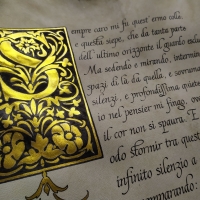 Sempre caro mi fu quest'ermo colle
e questa siepe, che da tanta parte
dell'ultimo orizzonte il guardo esclu
Ma sedendo e mirando, intermin
spazi di là da quella, e sovruman
silenzi, e profondissima quiet
io nel pensier mi fingo, ove
il cor non si spaura. E
odo stormir tra quest
infinito silenzio a
comparando: